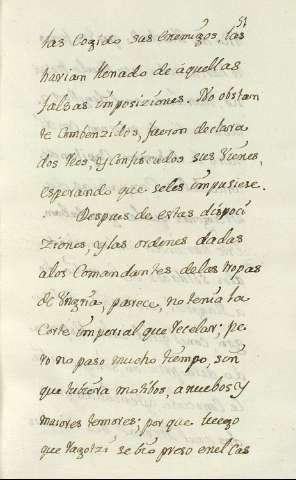 51
las Cogido sus Enemigos, las
havian llenado de aquellas
falsas imposiziones. No obstan
te Combenzidos, fueron declara
dos Reos, y Confiscados sus Vienes,
esperando que seles impusiese.
Despues de estas disposi
ziones, y las ordenes dadas
alos Comandantes delas tropas
de Vngria, parece, no tenia la
Corte imperial que rezelar; pe
ro no paso mucho tiempo, sin
que tubiera motibos, a nuebos y
maiores temores; por que luego
que Ragotzi se bio preso en el Cas